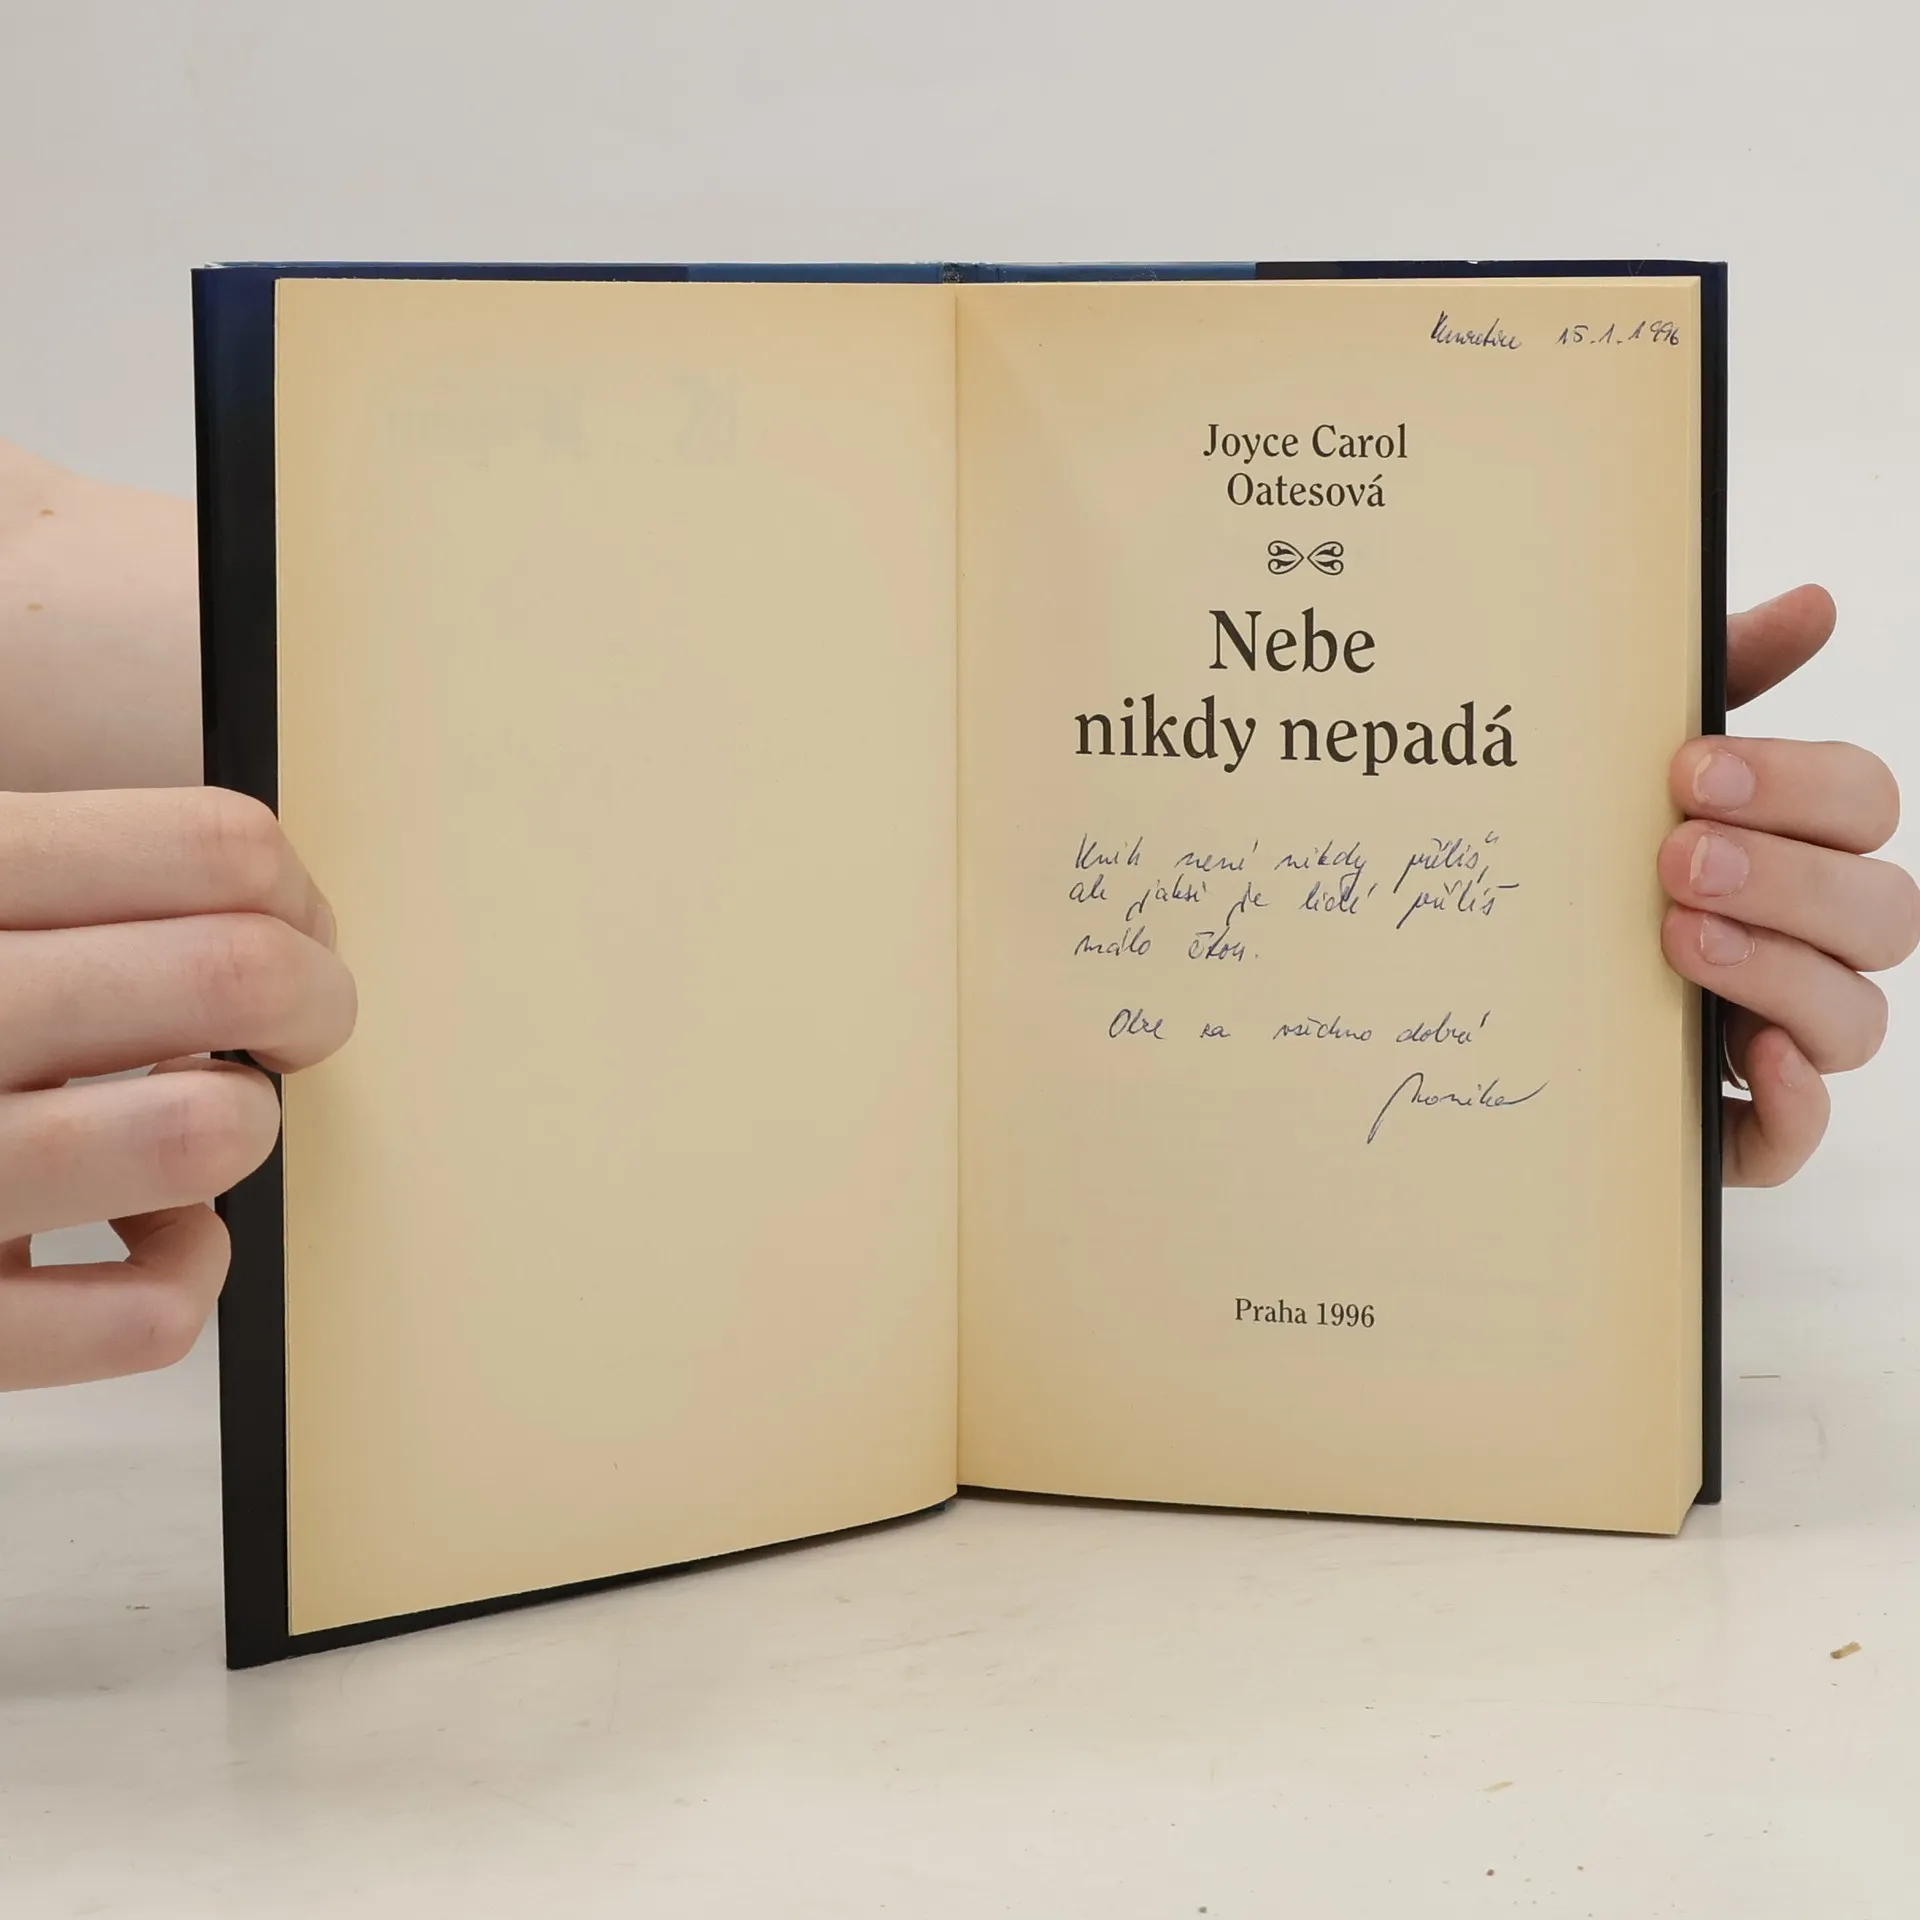 Kunratice 15.1.1996
Joyce Carol
Oatesová
Nebe
nikdy nepadá
Knih není nikdy příliš,
ale jaksi je lidé příliš
málo čtou.
za všechno dobré
Monika
Praha 1996